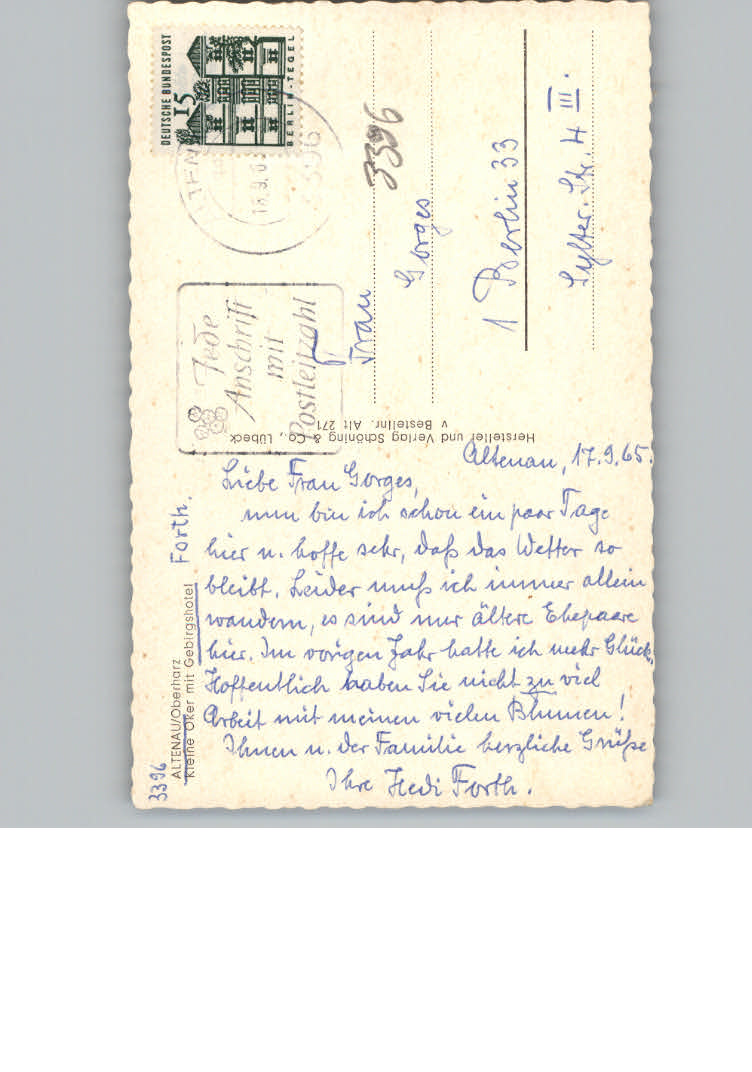 DEUTSCHE BUNDESPOST
15
BERLIN-TEGEL
3396
Jede
Anschrift
mit
Postleitzahl
3396
Frau
Gorges
1 Berlin 33
Sylter. Str. 4 III.
Hersteller und Verlag Schöning & Co., Lübeck
v Bestellnr. Alt 271
3396
ALTENAU/Oberharz
Kleine Oker mit Gebirgshotel
Forth.
Altenau, 17.9.65.
Liebe Frau Gorges,
nun bin ich schon ein paar Tage
hier u. hoffe sehr, daß das Wetter so
bleibt. Leider muß ich immer allein
wandern, es sind nur ältere Ehepaare
hier. Im vorigen Jahr hatte ich mehr Glück.
Hoffentlich haben Sie nicht zu viel
Arbeit mit meinen vielen Blumen!
Ihnen u. der Familie herzliche Grüße
Ihre Hedi Forth.